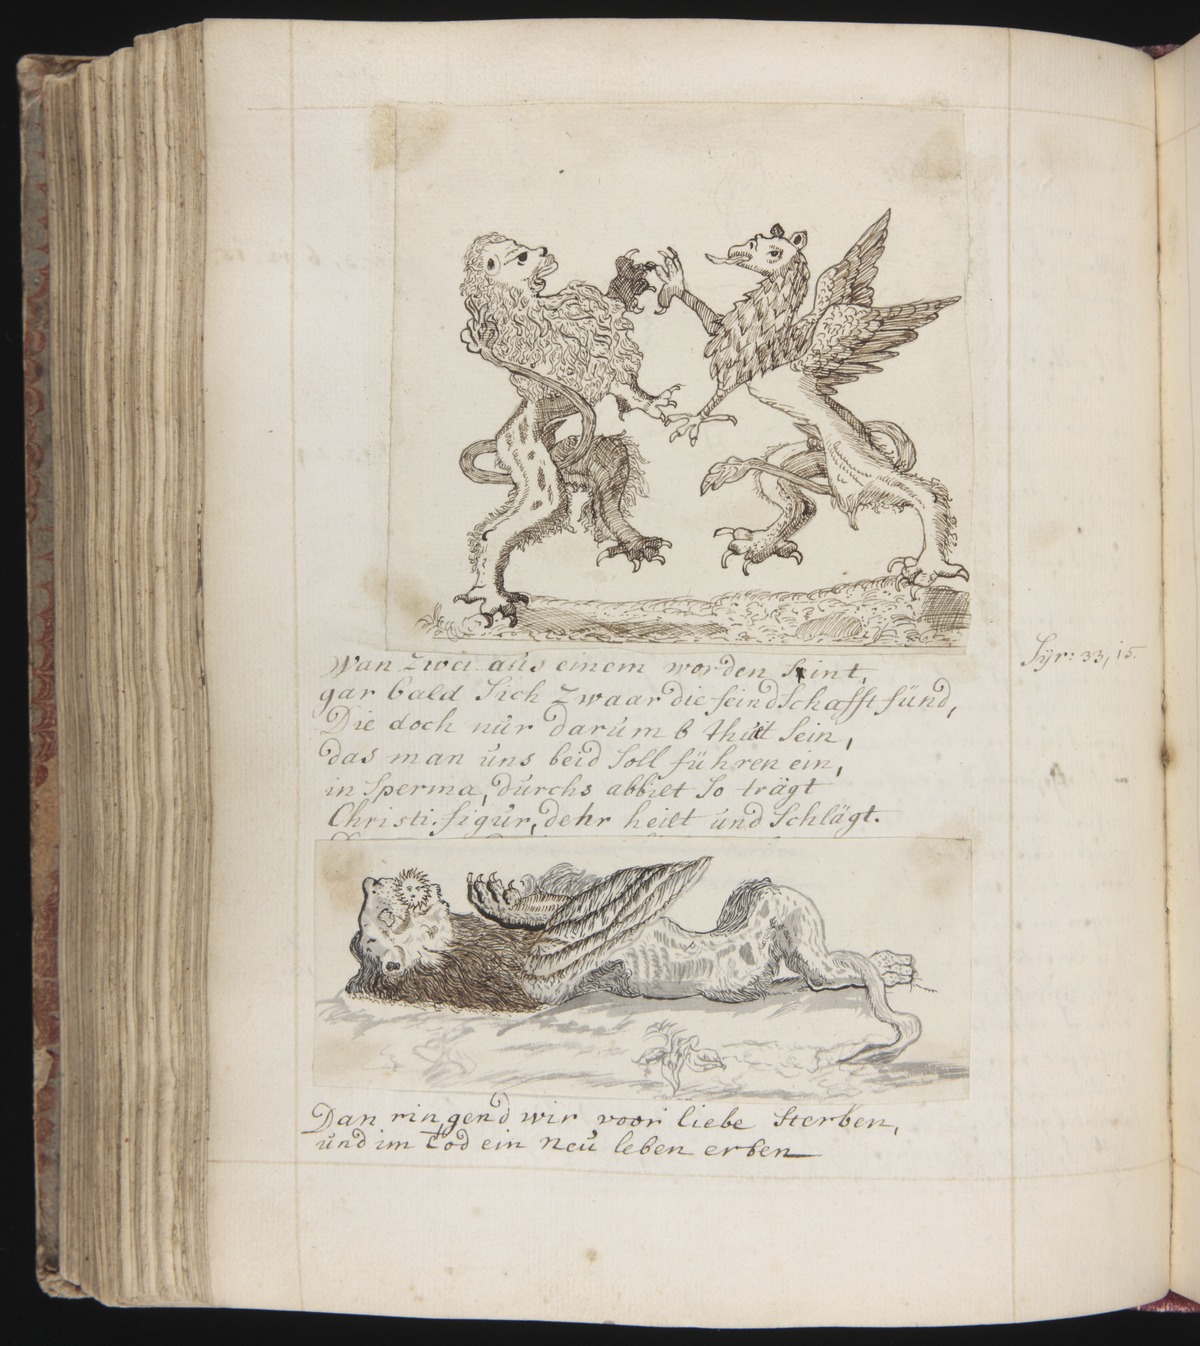 Wan Zwei aus einem worden seint,
gar bald Sich Zwaar die feindSchafft fünd,
Die doch nür darüm b thüet Sein,
das man üns beid Soll führen ein,
in Sperma, dürchs abbilt So trägt
Christi figür, dehr heilt und Schlägt.
Syr: 33, 15.
Dan ringend wir voor liebe Sterben,
ünd im Tod ein Neü leben erben